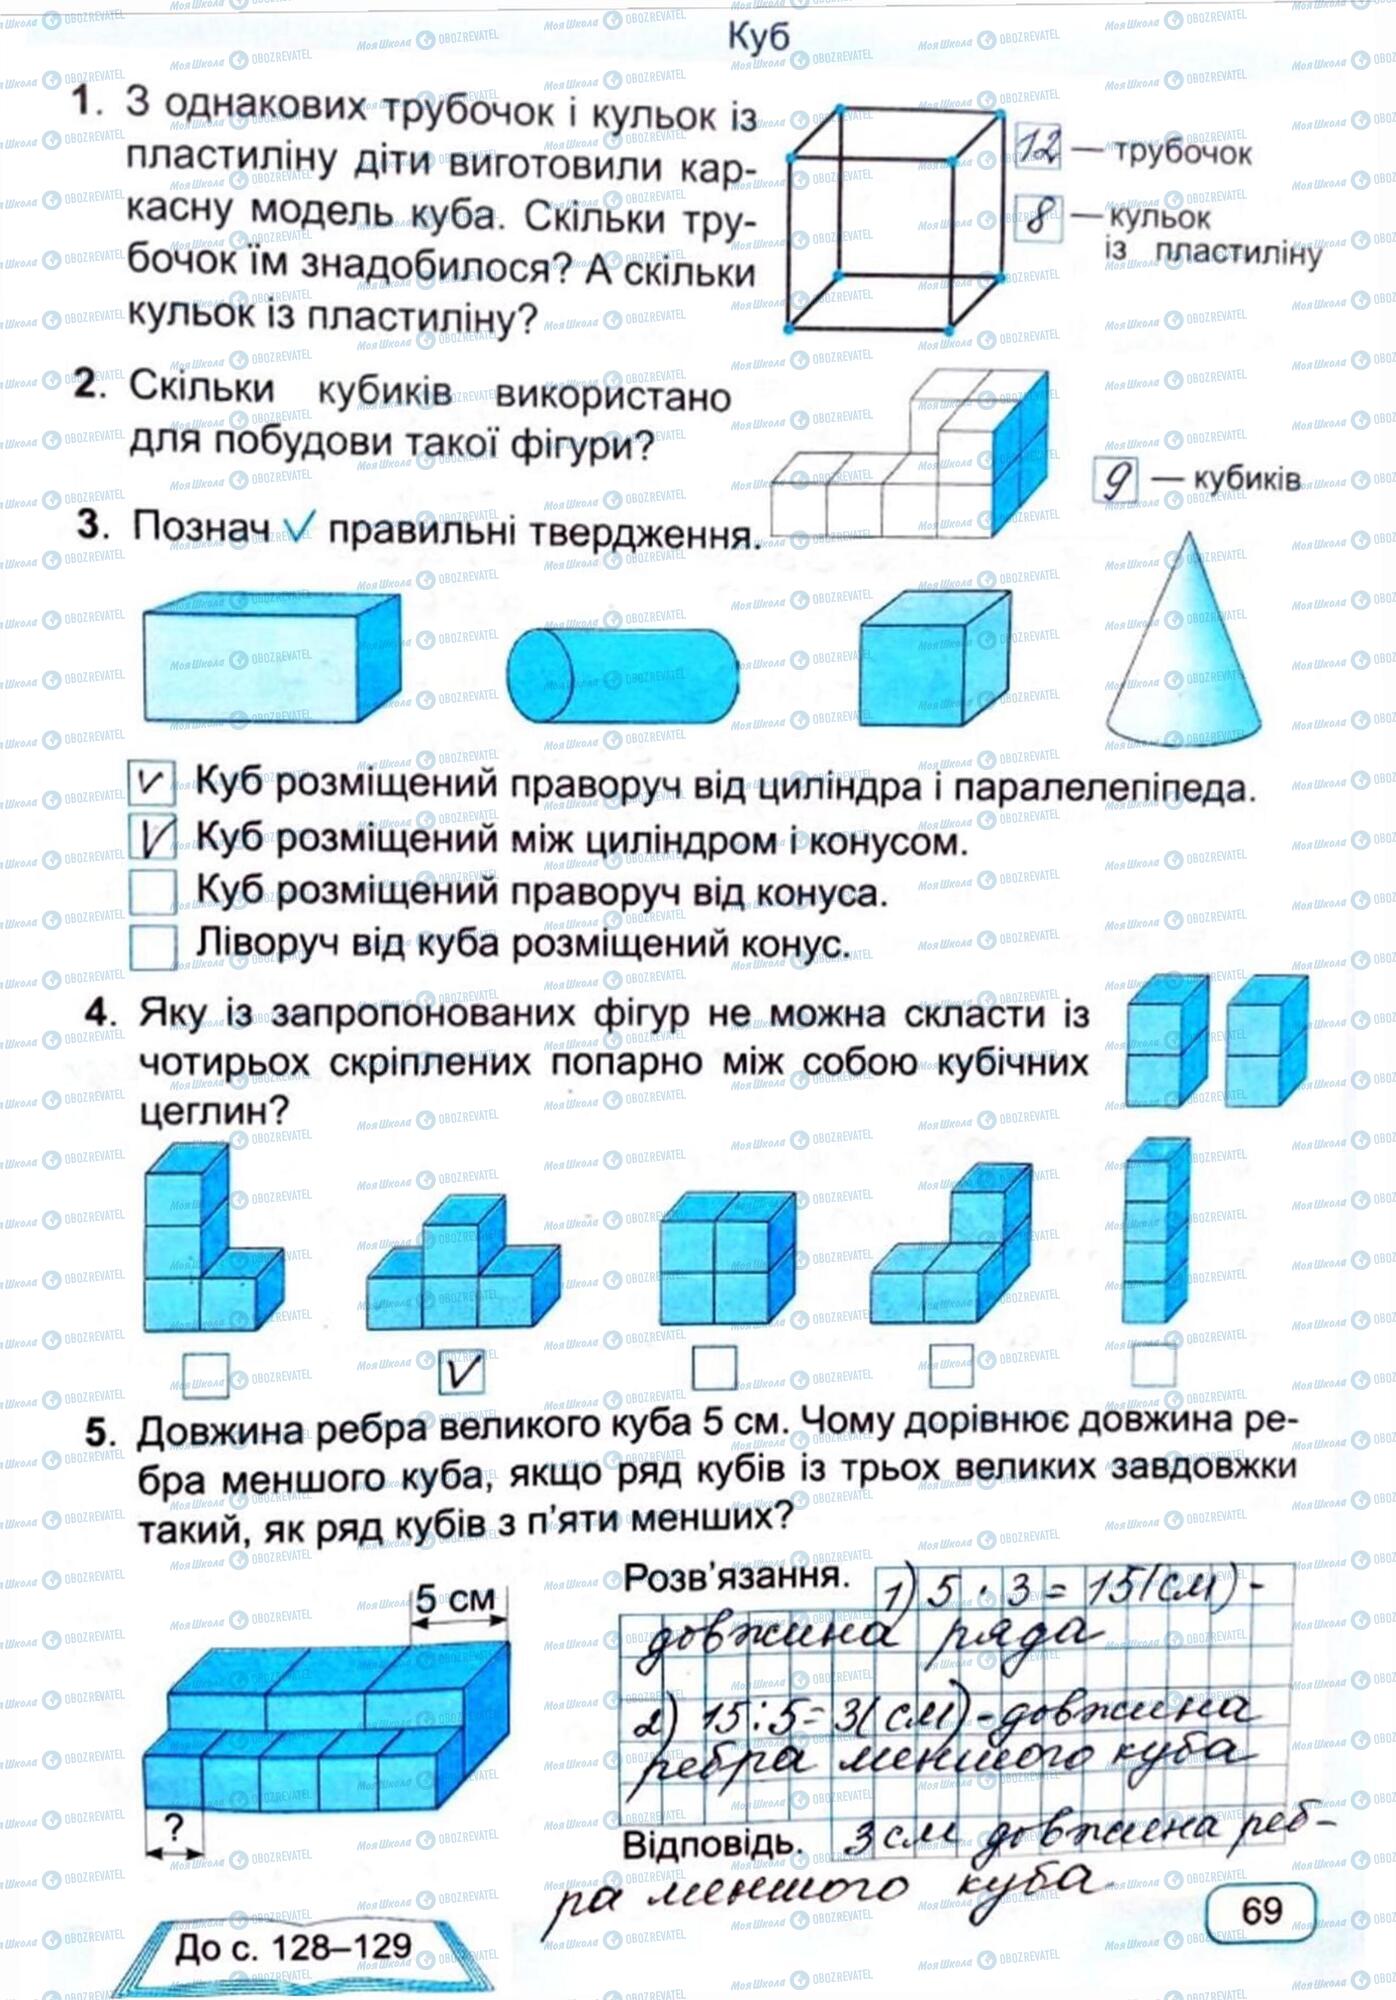 Куб
1. З однакових трубочок і кульок із
пластиліну діти виготовили кар-
касну модель куба. Скільки тру-
бочок їм знадобилося? А скільки
кульок із пластиліну?
12 — трубочок
8 — кульок
із пластиліну
2. Скільки кубиків використано
для побудови такої фігури?
9 — кубиків
3. Познач √ правильні твердження.
√ Куб розміщений праворуч від циліндра і паралелепіпеда.
√ Куб розміщений між циліндром і конусом.
Куб розміщений праворуч від конуса.
Ліворуч від куба розміщений конус.
4. Яку із запропонованих фігур не можна скласти із
чотирьох скріплених попарно між собою кубічних
цеглин?
√
5. Довжина ребра великого куба 5 см. Чому дорівнює довжина ре-
бра меншого куба, якщо ряд кубів із трьох великих завдовжки
такий, як ряд кубів з п’яти менших?
5 см
?
Розв’язання. 1) 5 · 3 = 15(см) -
довжина ряда
2) 15:5=3(см)-довжина
ребра меншого куба
Відповідь. 3 см довжина реб-
ра меншого куба.
До с. 128–129
69
МояШкола OBOZREVATEL